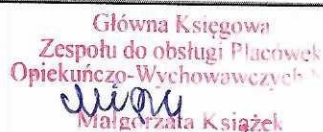 Główna Księgowa
Zespołu do obsługi Placówek
Opiekuńczo-Wychowawczych
Małgorzata Książek